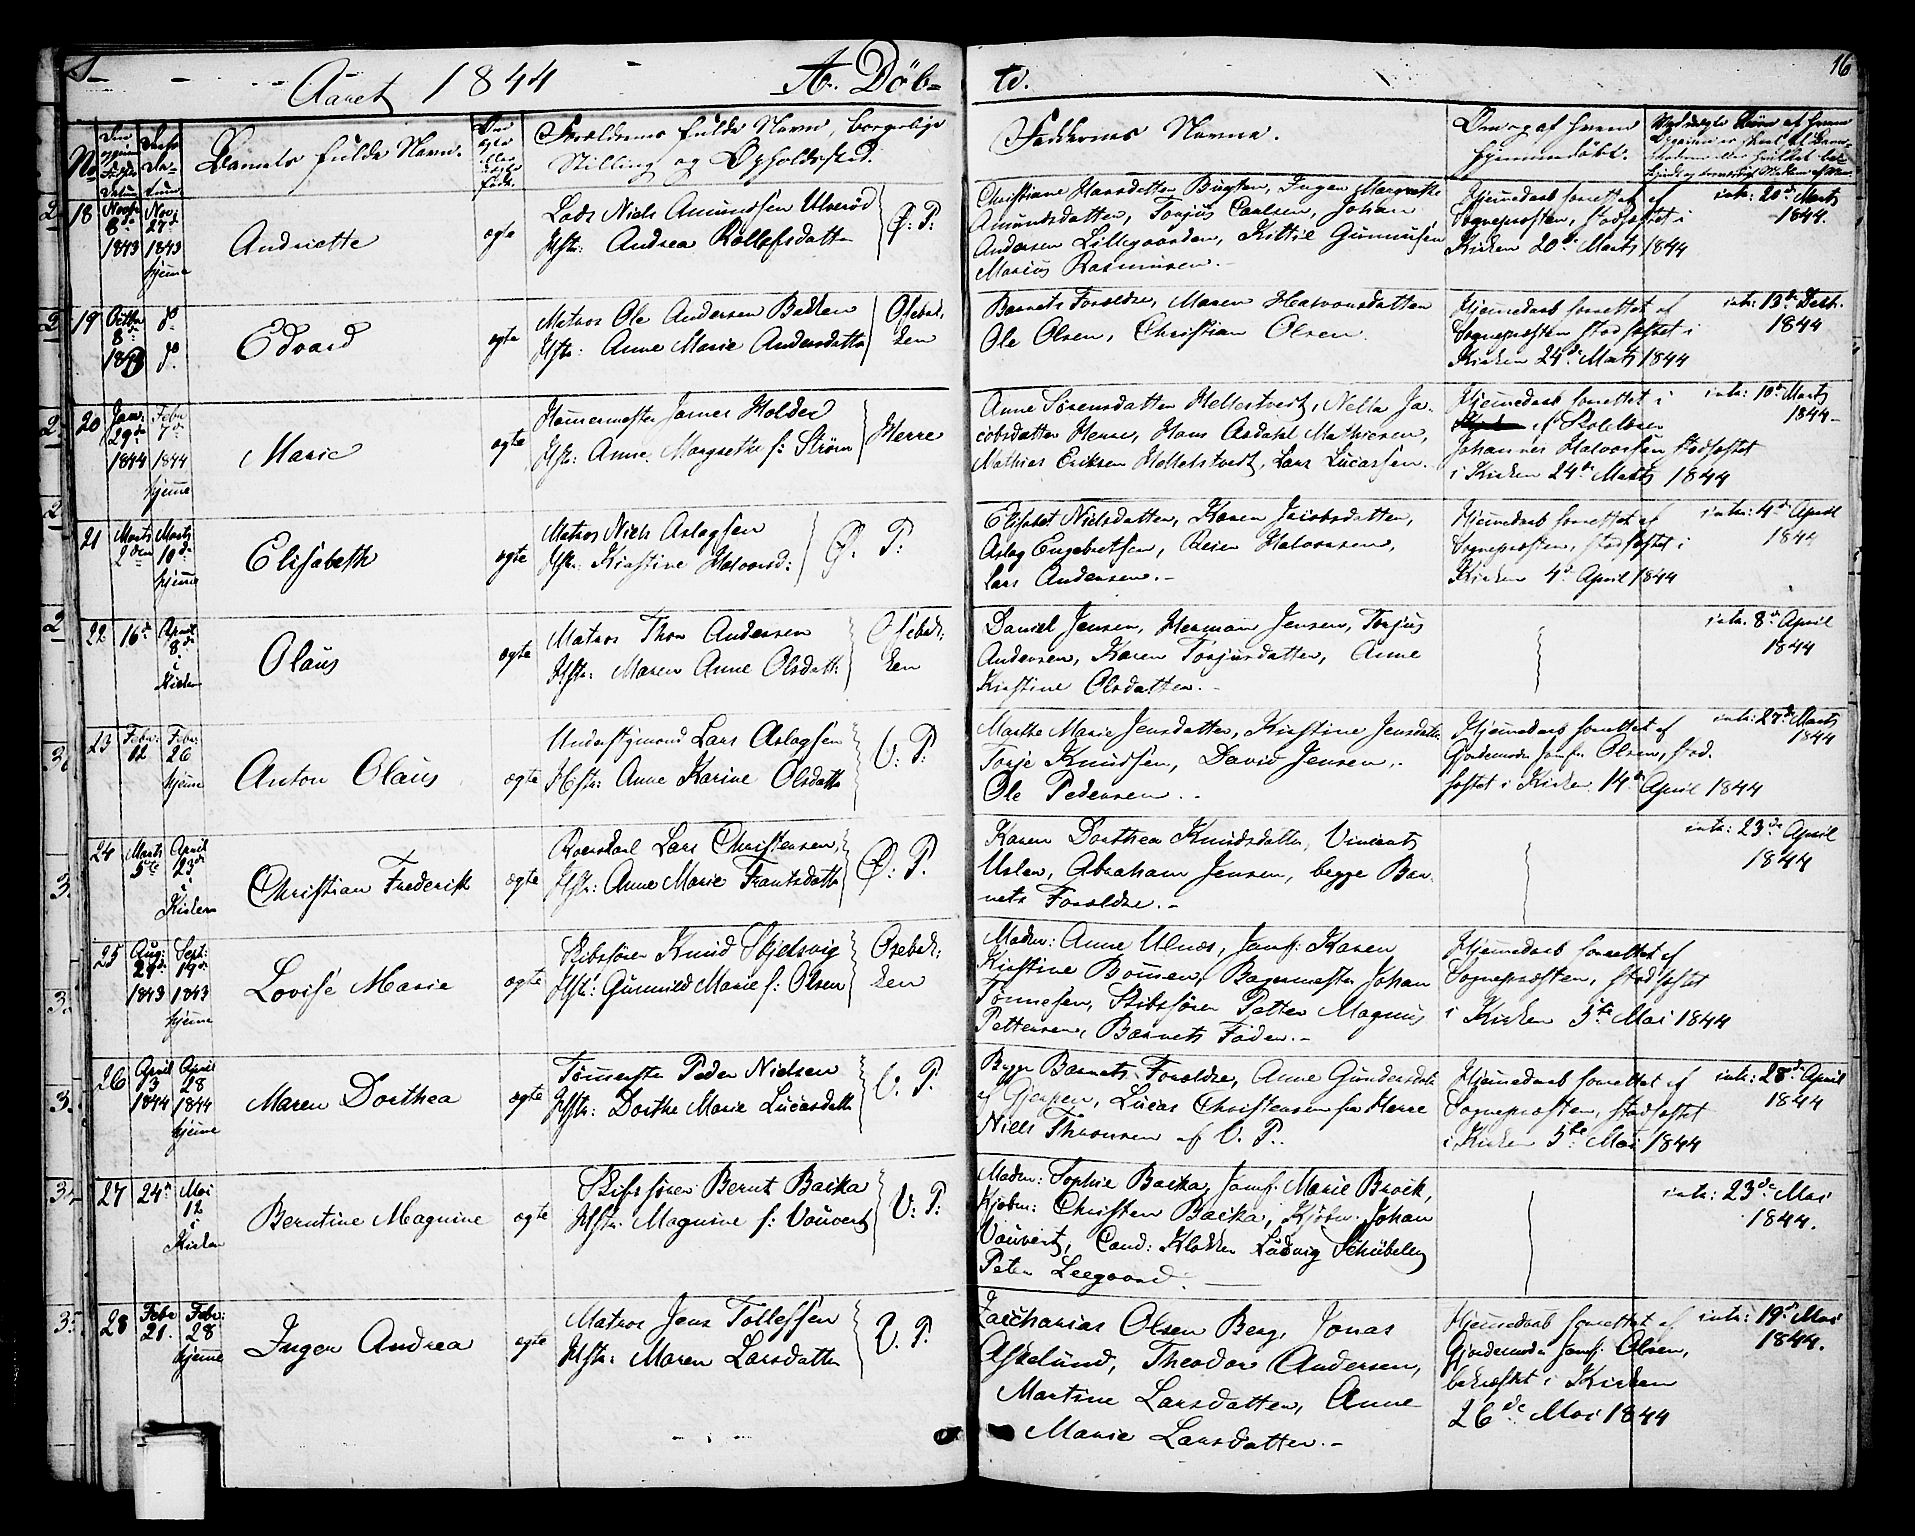 Aaret 1844 A. Døb-
te. 16
No Barnets fulde Navn. Forældrenes fulde Navn, borgerlige
Stilling og Opholdssted.
Faddernes Navne.
Om og af hvem
hjemmedøbt.
18 Novbr 8de 1843 Nov: 27de 1843 hjeme
Andriette
ægte
Lods Niels Amundsen Ulverød
Hstr: Andrea Rollefsdatter
Ø: P:
Christiane Hansdatter Bugten, Inger Margrethe
Amundsdatter, Torjus Carlsen, Johan
Andersen Lillegaarden, Kittil Gunnufsen
Marius Rasmusen.-
Hjemmedaab forrettet af
Sognepræsten, stadfæstet i
Kirken 20de Marts 1844
intr: 20de Marts
1844.
19 Octbr 8de 1843 do do
Edvard
ægte
Matros Ole Andersen
Hstr: Anne Marie Andersdatter
Osebak:
ken
Barnets Forældre, Maren Halvorsdatter
Ole Olsen, Christian Olsen.
Hjemmedaab forrettet af
Sognepræsten stadfæstet i
Kirken 24de Marts 1844
intr: 13de Decbr.
1844
20 Janr 29de 1844 Febr 7de 1844 hjeme
Marie
ægte
Hammermester James Holder
Hstr: Anne Margrethe f: Strøm
Herre
Anne Sørensdatter Hellestvedt, Nella Ja-
cobsdatter Herre, Hans Asdahl Mathiesen,
Mathies Eriksen Hellestvedt, Lars Lucassen.
Hjemmedaab forrettet i
af Skolelærer
Johannes Halvorsen stadfæstet
i Kirken 24de Marts 1844
intr: 10de Marts
1844-
21 Marts 2den Marts 10de hjeme
Elisabeth
ægte
Matros Niels Aslagsen
Hstr: Kirstine Halvorsd:
Ø: P:
Elisabet Nielsdatter, Karen Jacobsdatter,
Aslag Engebretsen, Reier Halvorsen,
Lars Andersen.-
Hjemmedaab forrettet af
Sognepræsten, stadfæstet i
Kirken 4de April 1844
intr: 4de April
1844
22 16de April 8de i Kirken
Olaus
ægte
Matros Thor Andersen
Hstr: Maren Anne Olsdatt:
Osebak:
ken
Daniel Jensen, Herman Jensen, Torjus
Andersen, Karen Torjusdatter, Anne
Kirstine Olsdatter.-
intr. 8de April
1844
23 Febr: 12 Febr: 26 hjeme
Anton Olaus
ægte
Understyrmand Lars Aslagsen
Hstr: Anne Karine Olsdatter
V: P:
Marthe Marie Jensdatter, Kirstine Jensdatter
Torje Knudsen, David Jensen.
Ole Pedersen.-
Hjemmedaab forrettet af
Gjordemoder Jomfr. Olsen, stad.
fæstet i Kirken 14de April 1844
intr: 27de Marts
1844
24 Marts 5te April 23de i Kirken
Christian Frederik
ægte
Roerskarl Lars Christensen,
Hstr: Anne Marie Frantsdatter
Ø: P.
Karen Dorthea Knudsdatter, Vincents
Uslen, Abraham Jensen, begge Bar-
nets Forældre.-
intr: 23de April
1844
25 Aug: 29de 1843 Sept: 19de 1843 hjeme
Lovise Marie
ægte
Skibsfører Knud Skjelsvig
Hstr: Gunnild Marie f: Olsen
Osebak:
ken
Madm: Anne Ulnæs, Jomf: Karen
Kirstine Bomsen, Bagermester Johan
Tønnesen, Skibsfører Petter Magnus
Pettersen, Barnets Fader.-
Hjemmedaab forrettet af
Sognepræsten, stadfæstet
i Kirken 5te Mai 1844
26 April 13 1844 April 28 1844 hjeme
Maren Dorthea
ægte
Tømmerstr Peder Nielsen
Hstr: Dorthe Marie Lucasdatter
V. P.
Begge Barnets Forældre, Anne Gundersdatter
af Gjerpen, Lucas Christensen fra Herre
Niels Thronsen af V. P..
Hjemmedaab forrettet af
Sognepræsten, stadfæstet
i Kirken 5te Mai 1844
intr: 28de April
1844
27 24de Mai 12 i Kirken
Berntine Magnine
ægte
Skibsfører Bernt Backa
Hstr: Magnine f: Vauvert
V: P:
Madm: Sophie Backa, Jomf: Marie Brock,
Kjøbm: Christen Backa, Kjøbm: Johan
Vauvert, Cand: Klokker Ludvig Schübeler
Peter Leegaard.
intr: 23de Mai
1844.
28 Febr 21. Febr: 28 hjeme
Inger Andrea
ægte
Matros Jens Tollefsen
Hstr: Maren Larsdatter
V. P.
Zaccharias Olsen Berg, Jonas
Askelund, Theodor Andersen,
Martine Larsdatter, Anne
Marie Larsdatter.-
Hjemmedaab forrettet af
Gjordemoder Jomf: Olsen,
bekræftet i Kirken
26de Mai 1844
intr: 19de Mai
1844.